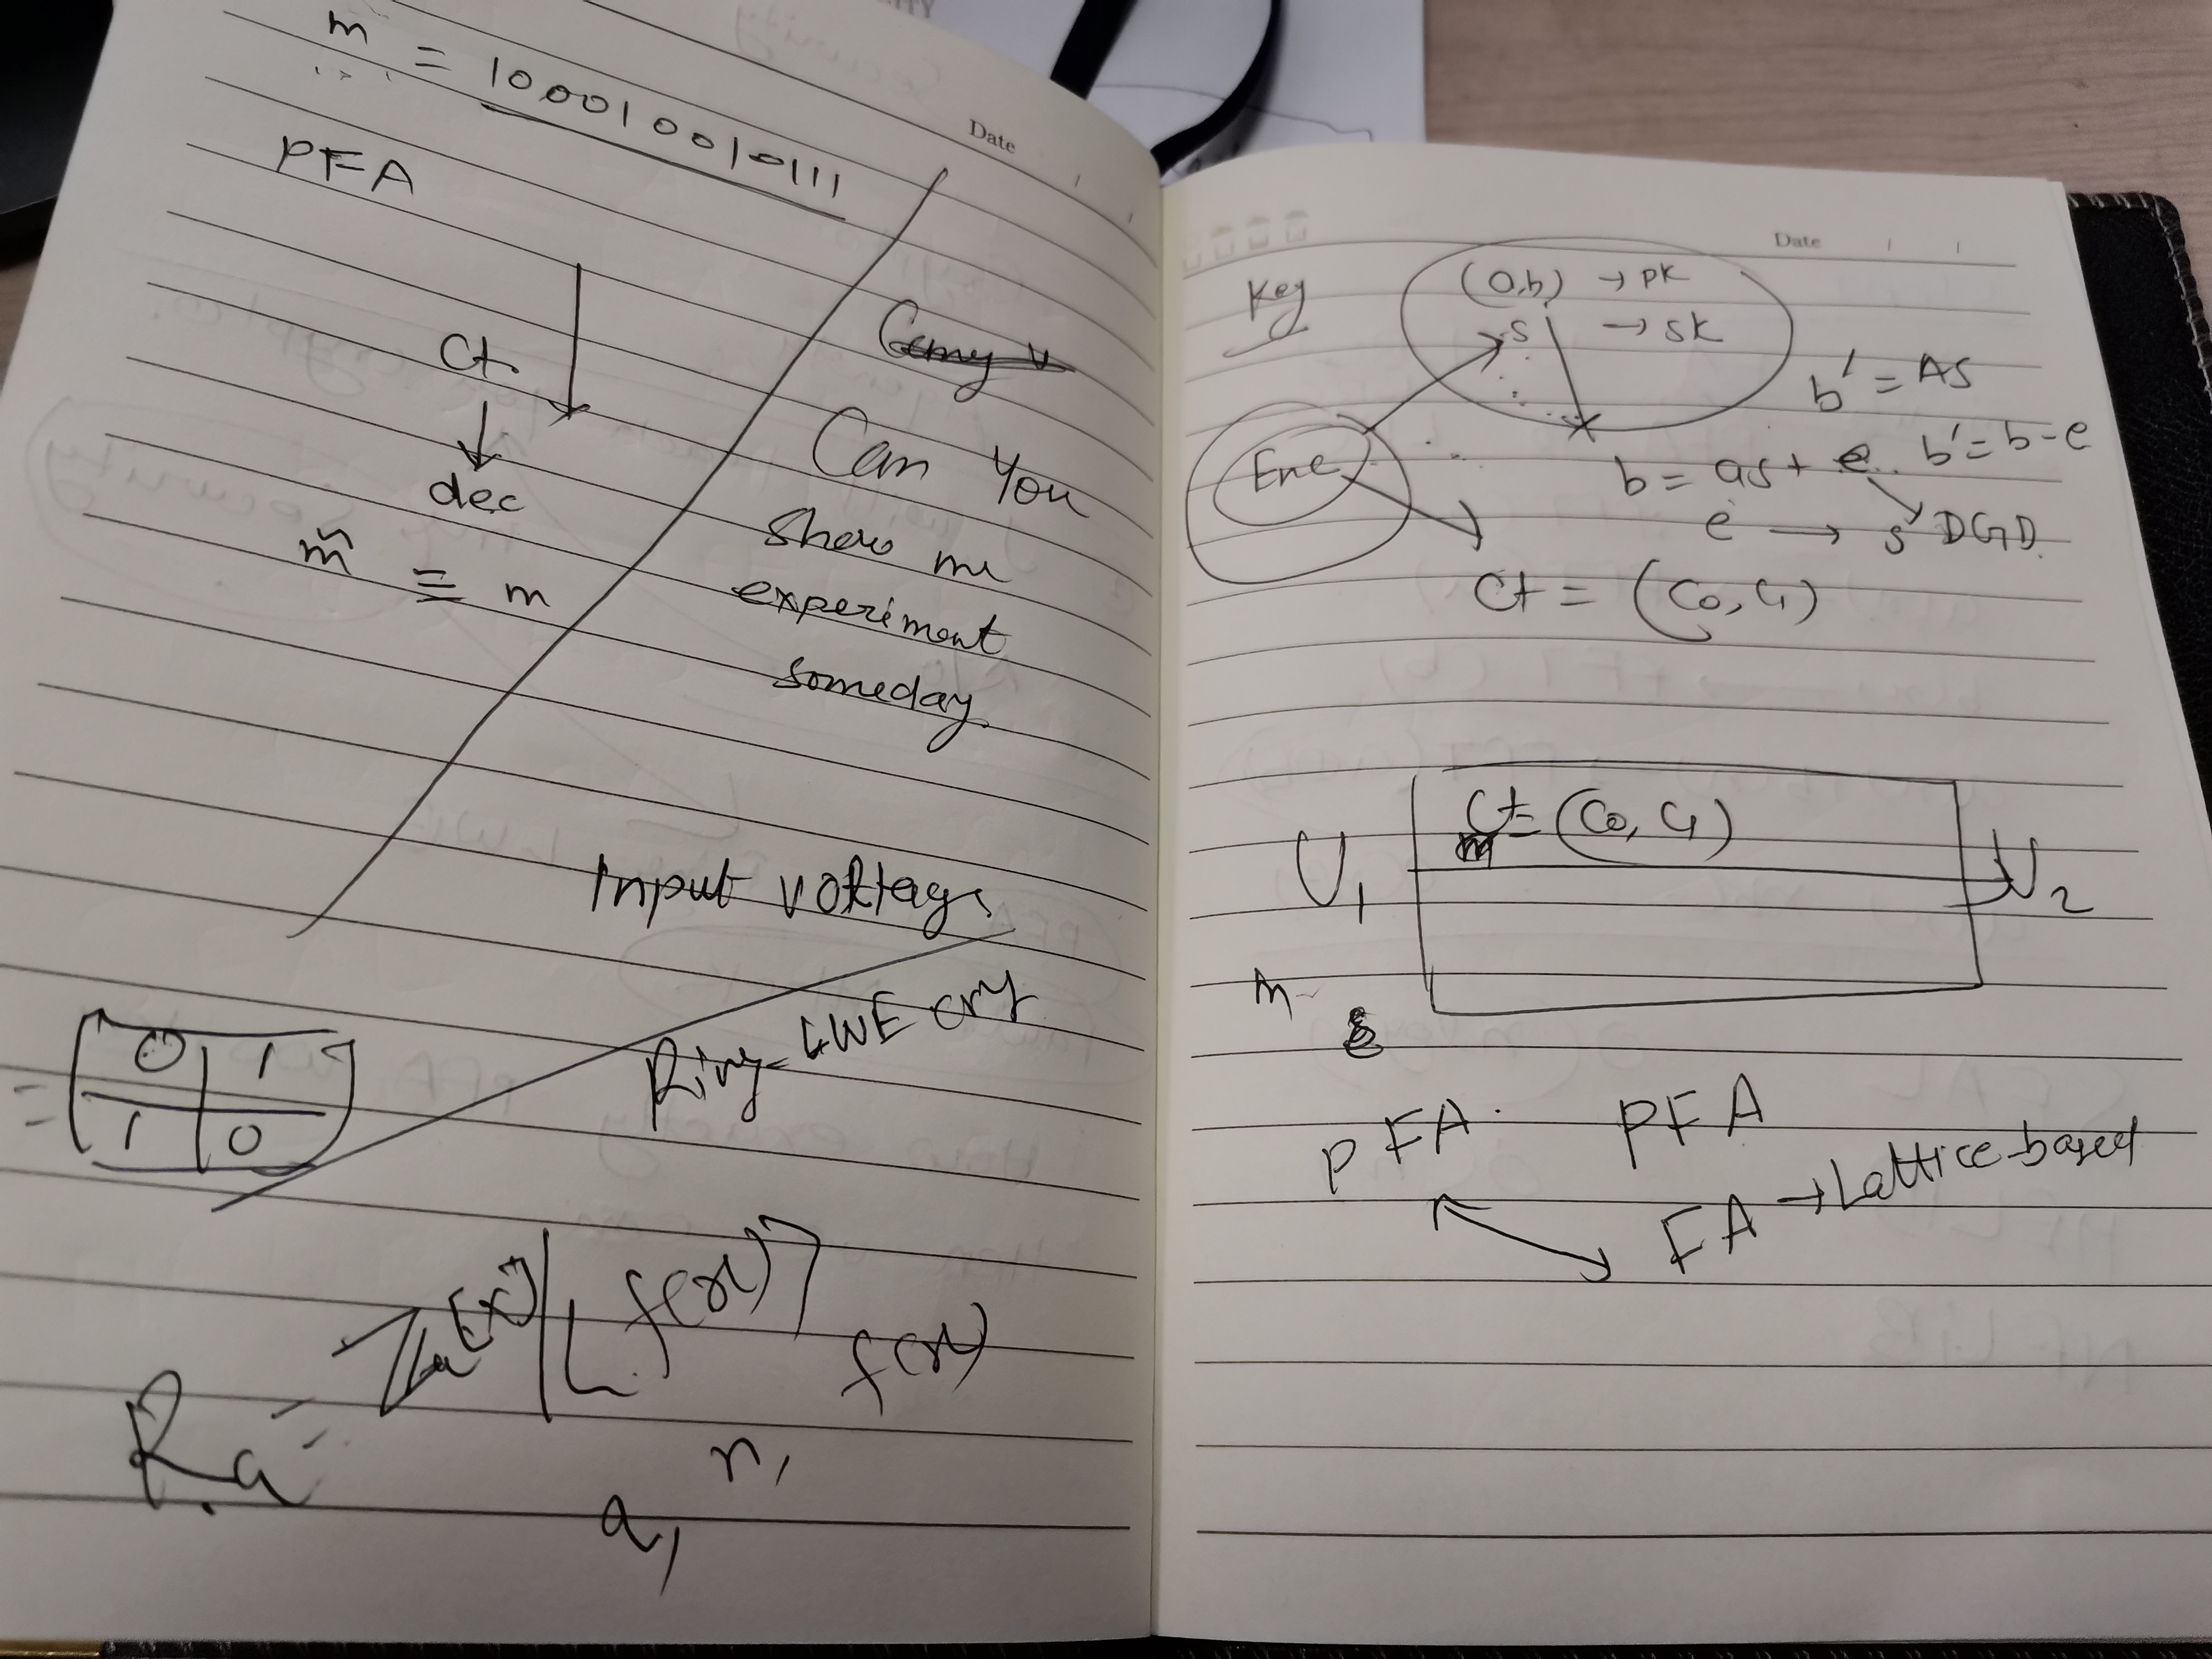 m = 100010010111
PFA
Ct.
dec
m̂ = m
Date
Can You
Show me
experiment
someday.
Input voltage
Ring-LWE cry
= 0 1
1 0
f(x)
f(x)
n,
a,
Date
Key
(a,b) → pk
s → sk
b' = As
Enc
b = as + e b' = b-e
e → s DGD.
Ct = (C0, C1)
Ct = (C0, C1)
U1 U2
m
PFA. PFA
FA → Lattice-based